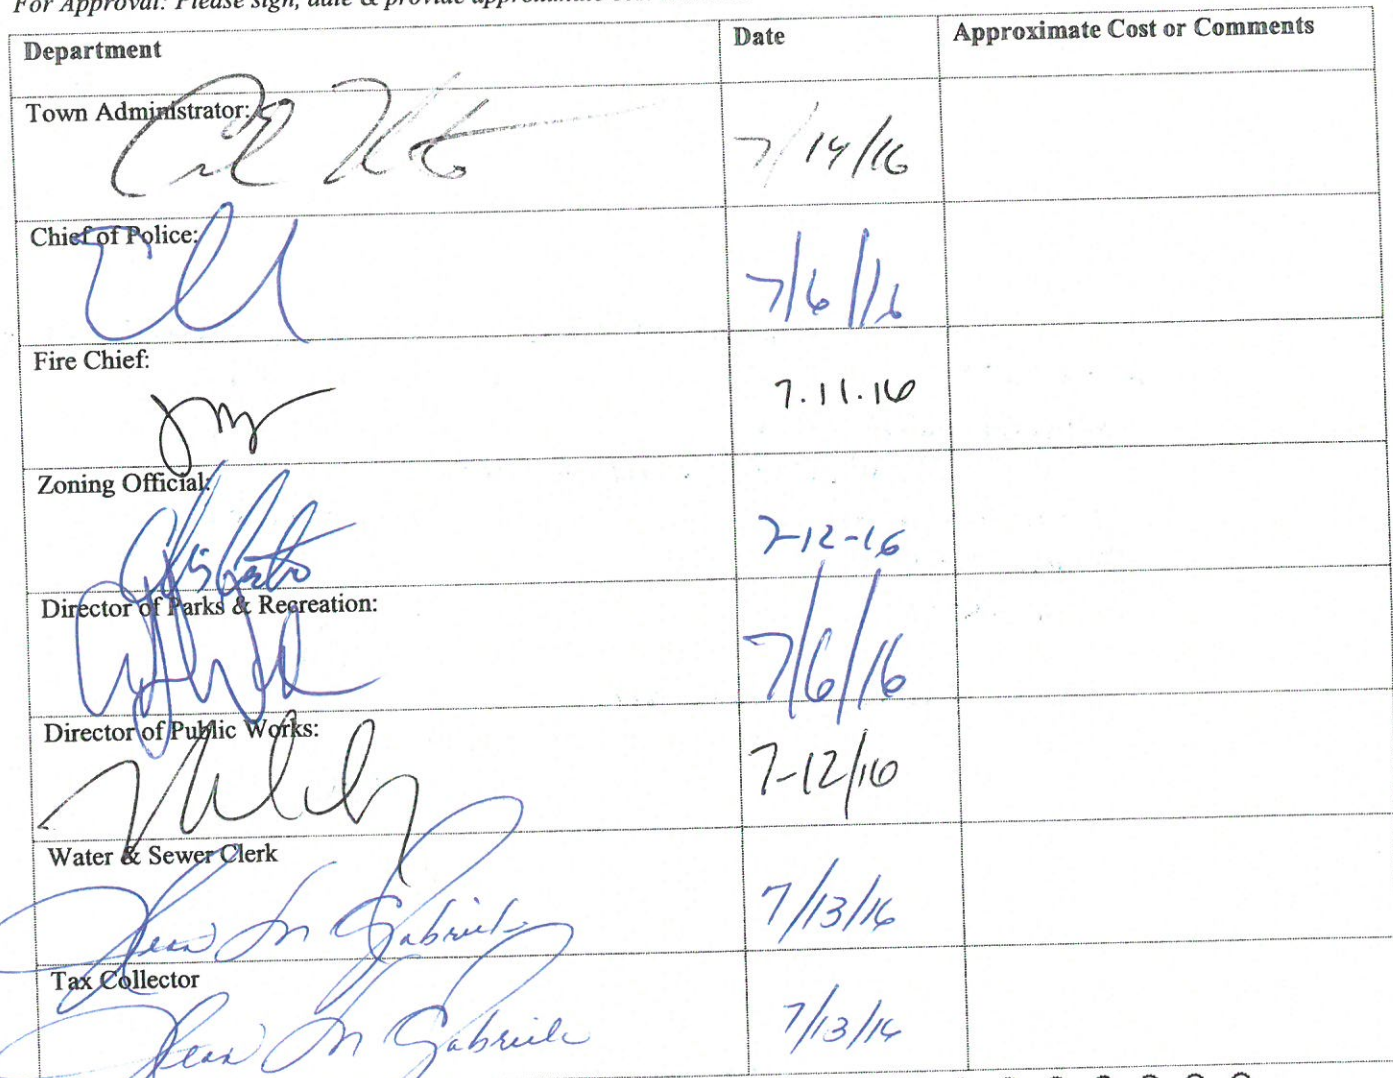 For Approval: Please sign, date & provide approximate
Department Date Approximate Cost or Comments
Town Administrator: 7/14/16
Chief of Police: 7/6/16
Fire Chief: 7.11.16
Zoning Official: 7-12-16
Director of Parks & Recreation: 7/6/16
Director of Public Works: 7-12/16
Water & Sewer Clerk
Jean M Gabriele 7/13/16
Tax Collector
Jean M Gabriele 7/13/16